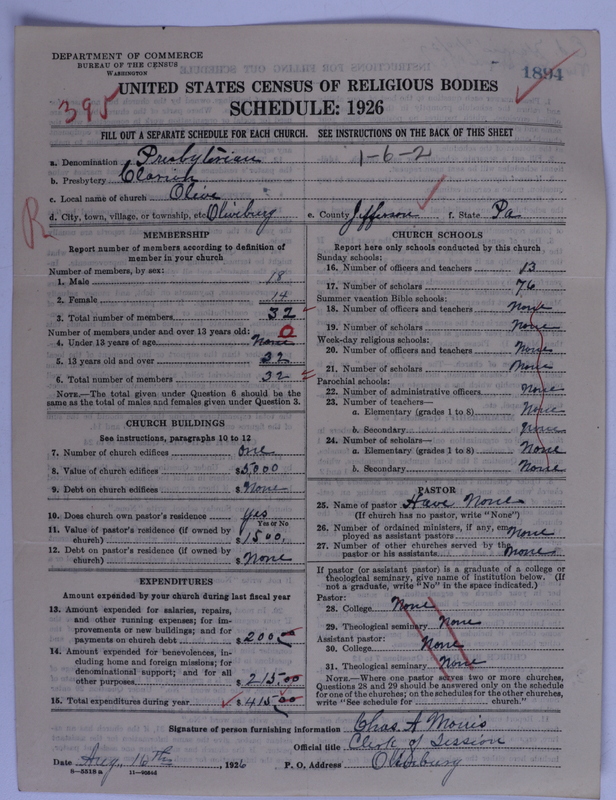 DEPARTMENT OF COMMERCE
BUREAU OF THE CENSUS
WASHINGTON
1894
UNITED STATES CENSUS OF RELIGIOUS BODIES
395
SCHEDULE: 1926
FILL OUT A SEPARATE SCHEDULE FOR EACH CHURCH. SEE INSTRUCTIONS ON THE BACK OF THIS SHEET
a. Denomination Presbyterian 1-6-2
b. Presbytery Clarion
c. Local name of church Olive
d. City, town, village, or township, etc. Oliveburg e. County Jefferson f. State Pa
R
MEMBERSHIP
Report number of members according to definition of
member in your church
Number of members, by sex:
1. Male 18
2. Female 14
3. Total number of members 32
Number of members under and over 13 years old: 0
4. Under 13 years of age None
5. 13 years old and over 32
6. Total number of members 32
NOTE.—The total given under Question 6 should be the
same as the total of males and females given under Question 3.
CHURCH BUILDINGS
See instructions, paragraphs 10 to 12
7. Number of church edifices one
8. Value of church edifices $5000
9. Debt on church edifices $None
10. Does church own pastor's residence? Yes
Yes or No
11. Value of pastor's residence (if owned by
church) $1500.
12. Debt on pastor's residence (if owned by
church) $None
EXPENDITURES
Amount expended by your church during last fiscal year
13. Amount expended for salaries, repairs,
and other running expenses; for im-
provements or new buildings; and for
payments on church debt $200.00
14. Amount expended for benevolences, in-
cluding home and foreign missions; for
denominational support; and for all
other purposes $215.00
15. Total expenditures during year $415.00
CHURCH SCHOOLS
Report here only schools conducted by this church
Sunday schools:
16. Number of officers and teachers 13
17. Number of scholars 76
Summer vacation Bible schools:
18. Number of officers and teachers None
19. Number of scholars None
Week-day religious schools:
20. Number of officers and teachers None
21. Number of scholars None
Parochial schools:
22. Number of administrative officers None
23. Number of teachers—
a. Elementary (grades 1 to 8) None
b. Secondary None
24. Number of scholars—
a. Elementary (grades 1 to 8) None
b. Secondary None
PASTOR
25. Name of pastor Have None
(If church has no pastor, write "None")
26. Number of ordained ministers, if any, em-
ployed as assistant pastors None
27. Number of other churches served by the
pastor or his assistants None
If pastor (or assistant pastor) is a graduate of a college or
theological seminary, give name of institution below. (If
not a graduate, write "No" in the space indicated.)
Pastor:
28. College None
29. Theological seminary None
Assistant pastor:
30. College None
31. Theological seminary None
NOTE.—Where one pastor serves two or more churches,
Questions 28 and 29 should be answered only on the schedule
for one of the churches; on the schedules for the other churches,
write "See schedule for church."
Signature of person furnishing information Chas. A Morris
Official title Clerk of Session
Date Aug. 16th, 1926 P. O. Address Oliveburg
8—5518 a 11—90844